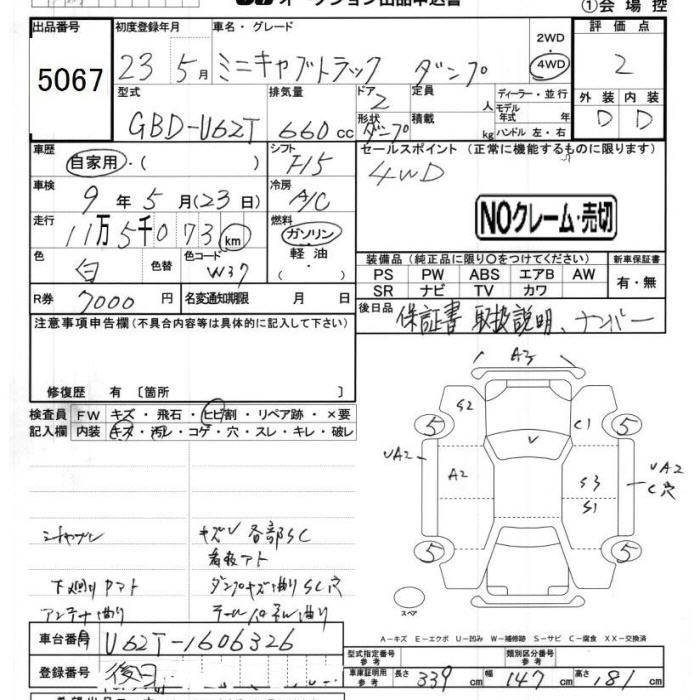 ①会場控
出品番号
5067
初度登録年月
23 5月
車名・グレード
ミニキャブトラック ダンプ
2WD
4WD
評価点
2
外装 内装
D D
型式
GBD-U62T
排気量
660cc
ドア
2
形状
ダンプ
定員
人
積載
kg
ディーラー・並行
モデル年式 年
ハンドル 左・右
車歴
自家用・( )
シフト
F15
車検
9年5月(23日)
冷房
A/C
走行
11万5千073km
燃料
ガソリン
軽油
( )
色
白
色替
色コード
W37
R券
7000円
名変通知期限 月 日
セールスポイント(正常に機能するものに限ります)
4WD
NOクレーム・売切
装備品(純正品に限り○をつけてください)
PS PW ABS エアB AW
SR ナビ TV カワ
新車保証書
有・無
後日品
保証書 取扱説明、ナンバー
注意事項申告欄(不具合内容等は具体的に記入して下さい)
修復歴 有〔箇所 〕
検査員記入欄
FW キズ・飛石・ヒビ割・リペア跡・×要
内装 キズ・汚レ・コゲ・穴・スレ・キレ・破レ
キズレ 各部SC
看板アト
下廻り サビ
ダンプキズ曲りSC穴
アンテナ曲り
テールパネル曲り
A3
S2
C1
5
5
UA2
A2
V
S3
S1
UA2
C穴
5
5
スペア
A−キズ E−エクボ U−凹み W−補修跡 S−サビ C−腐食 XX−交換済
車台番号
U62T-1606326
登録番号
後日
型式指定番号
参考
類別区分番号
参考
車庫証明用
参考
長さ 339cm 幅 147cm 高さ 181cm